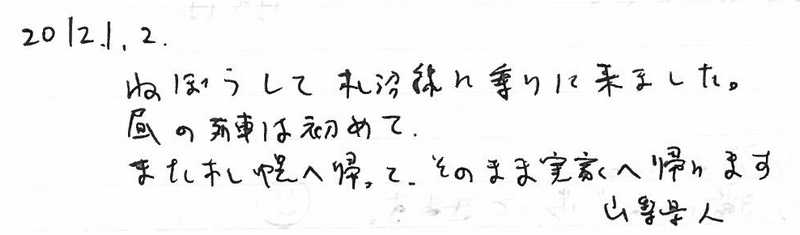 2012.1.2.
ねぼうして札沼線に乗りに来ました。
昼の列車は初めて.
また札幌へ帰って、そのまま実家へ帰ります
山梨県人